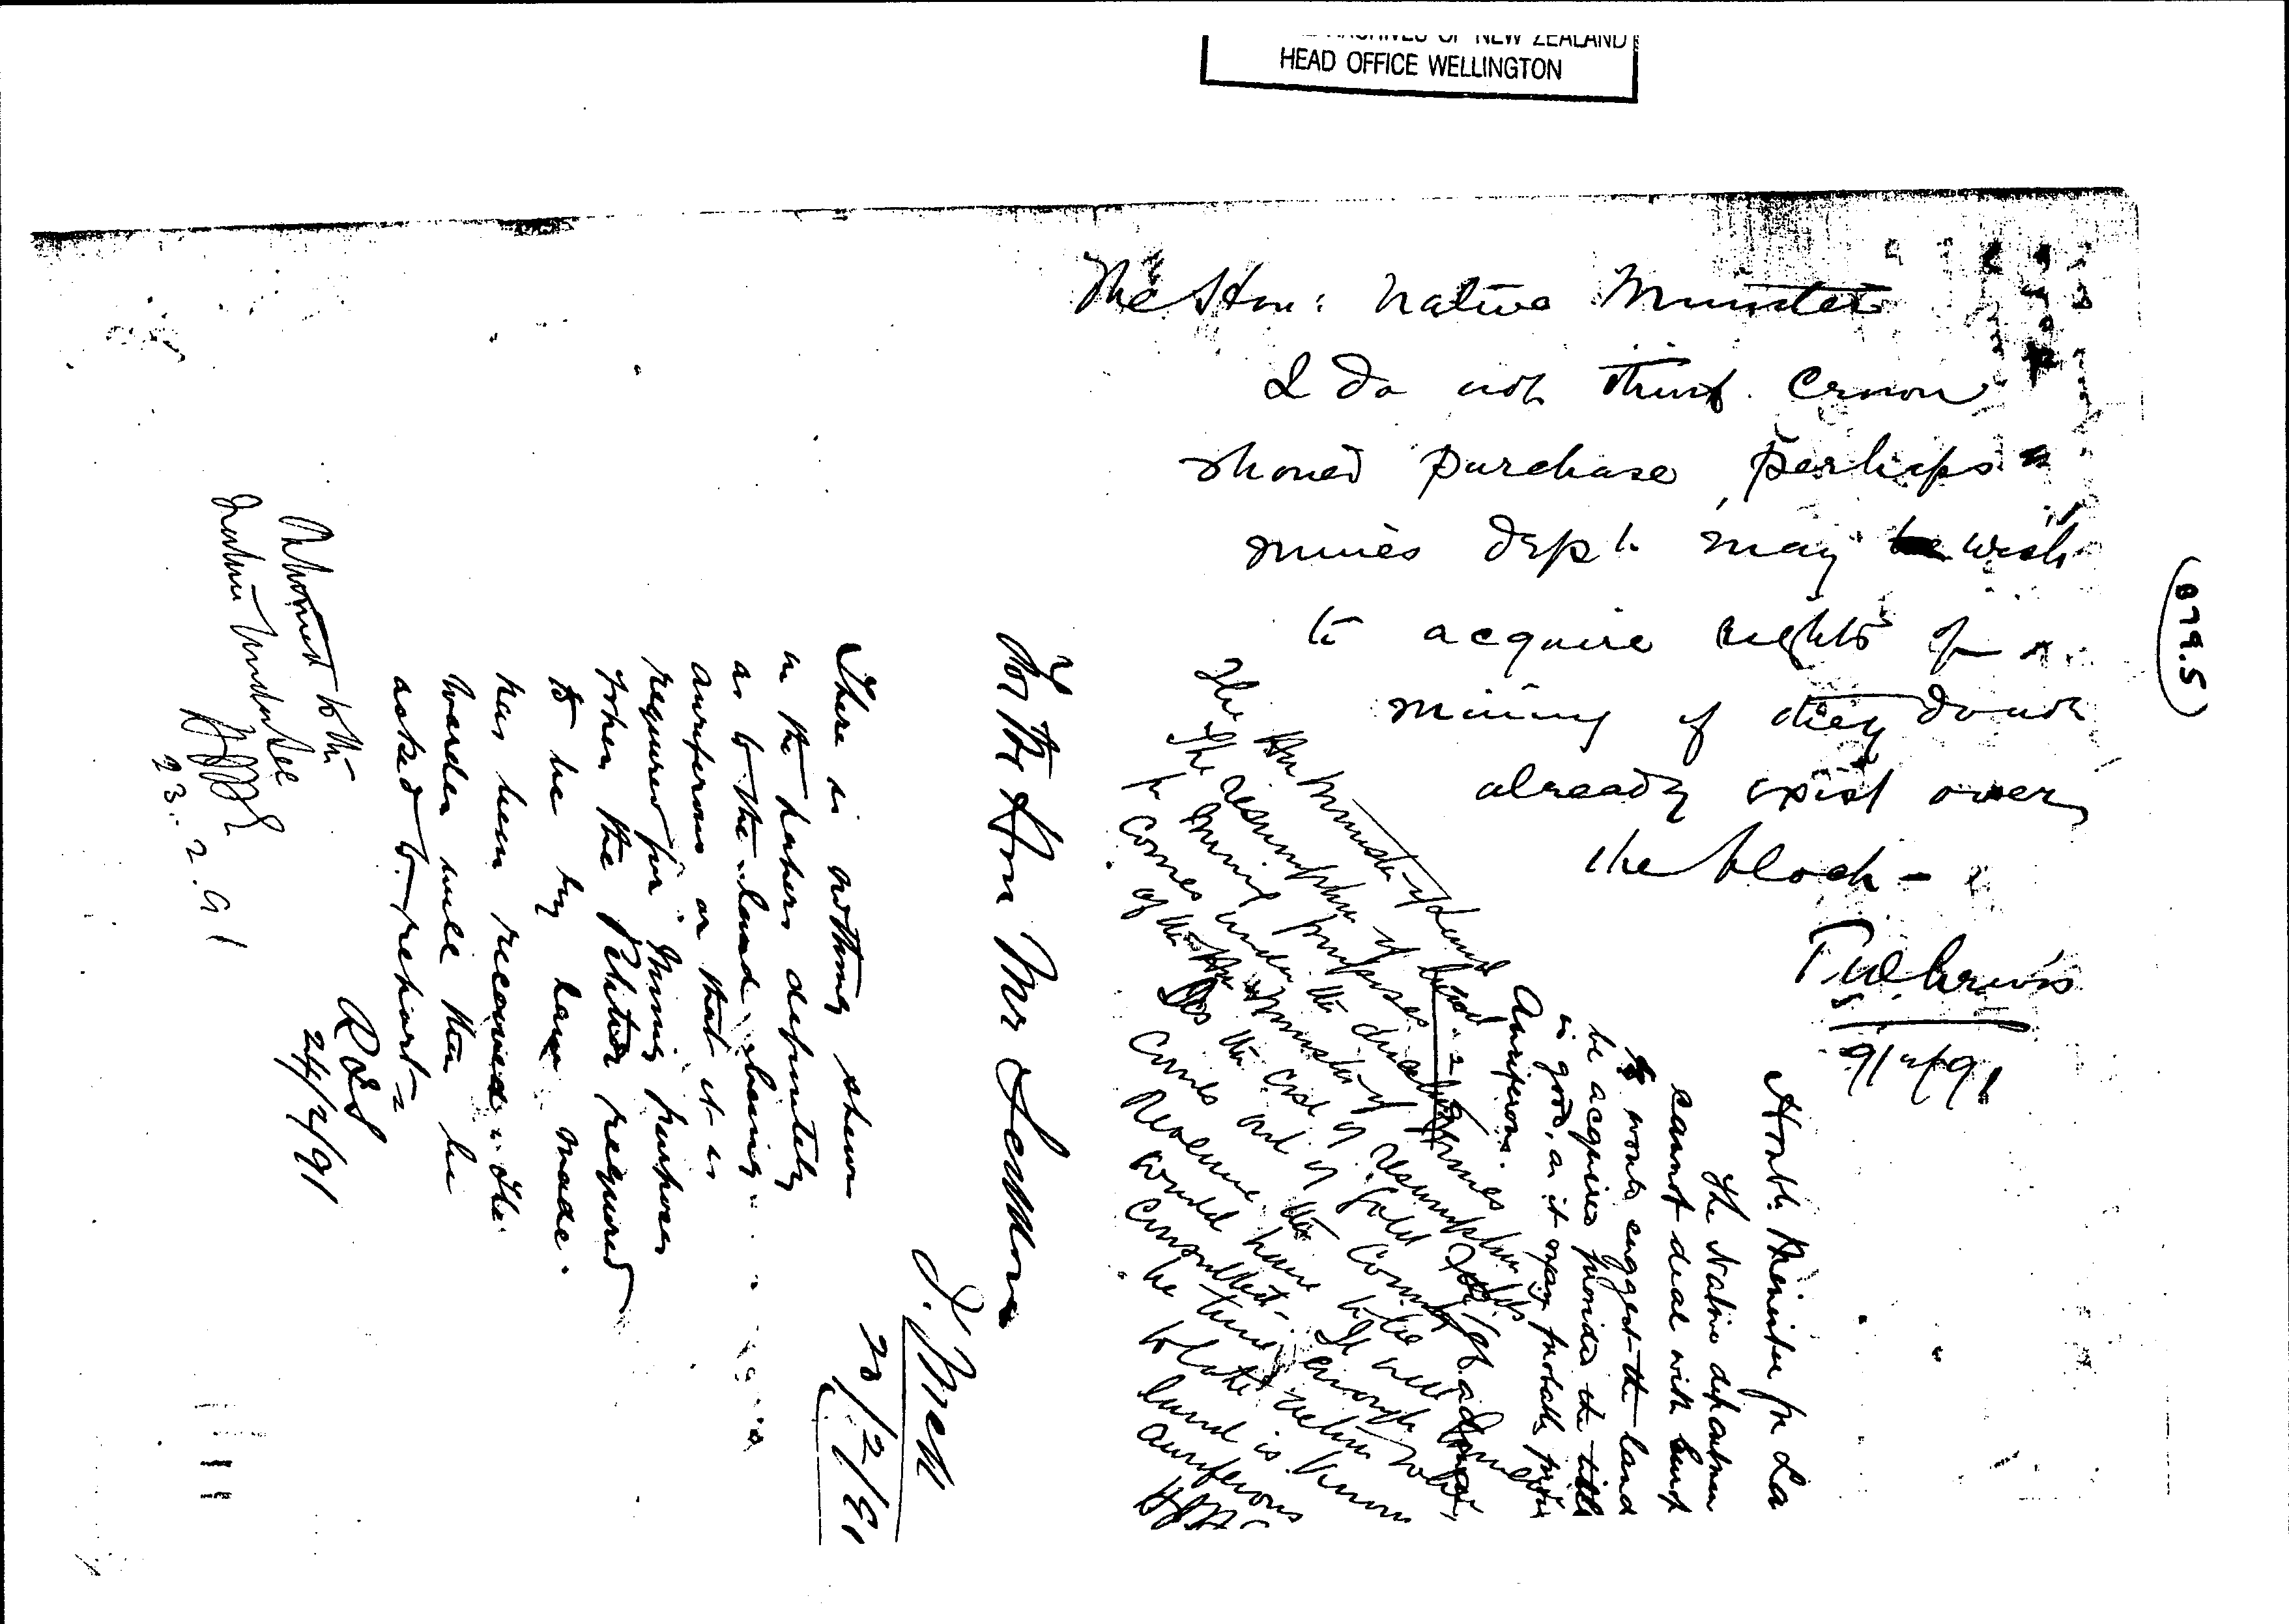 ARCHIVES OF NEW ZEALAND
HEAD OFFICE WELLINGTON
The Hon: Native Minister
I do not think Crown
should purchase perhaps
mines dept. may wish
to acquire rights of
mining if they do not
already exist over
the block -
T W Lewis
9/2/91
(879.5)
Honble. Minister for La
The Native departmen
cannot deal with
would suggest the land
be acquired provided the title
is good, as it may probably
Auriferous.
The Hon Minister of Lands
The resumption of land
for mining purposes
comes under the
of the Hon Minister of Mines
As the cost of resumption
comes out of Gold
Revenue the County
would have to be
consulted. It will
be time enough
to
land is known
auriferous
For The Hon Mr Seddon
J. McK
20/2/91
There is nothing shewn
in the papers definitely
as to the land being
auriferous or that it is
required for Mining purposes
when the Petition required
to be by law made.
has been received. The
Warden will then be
asked to report
RJS
24/2/91
to the
23.2.91